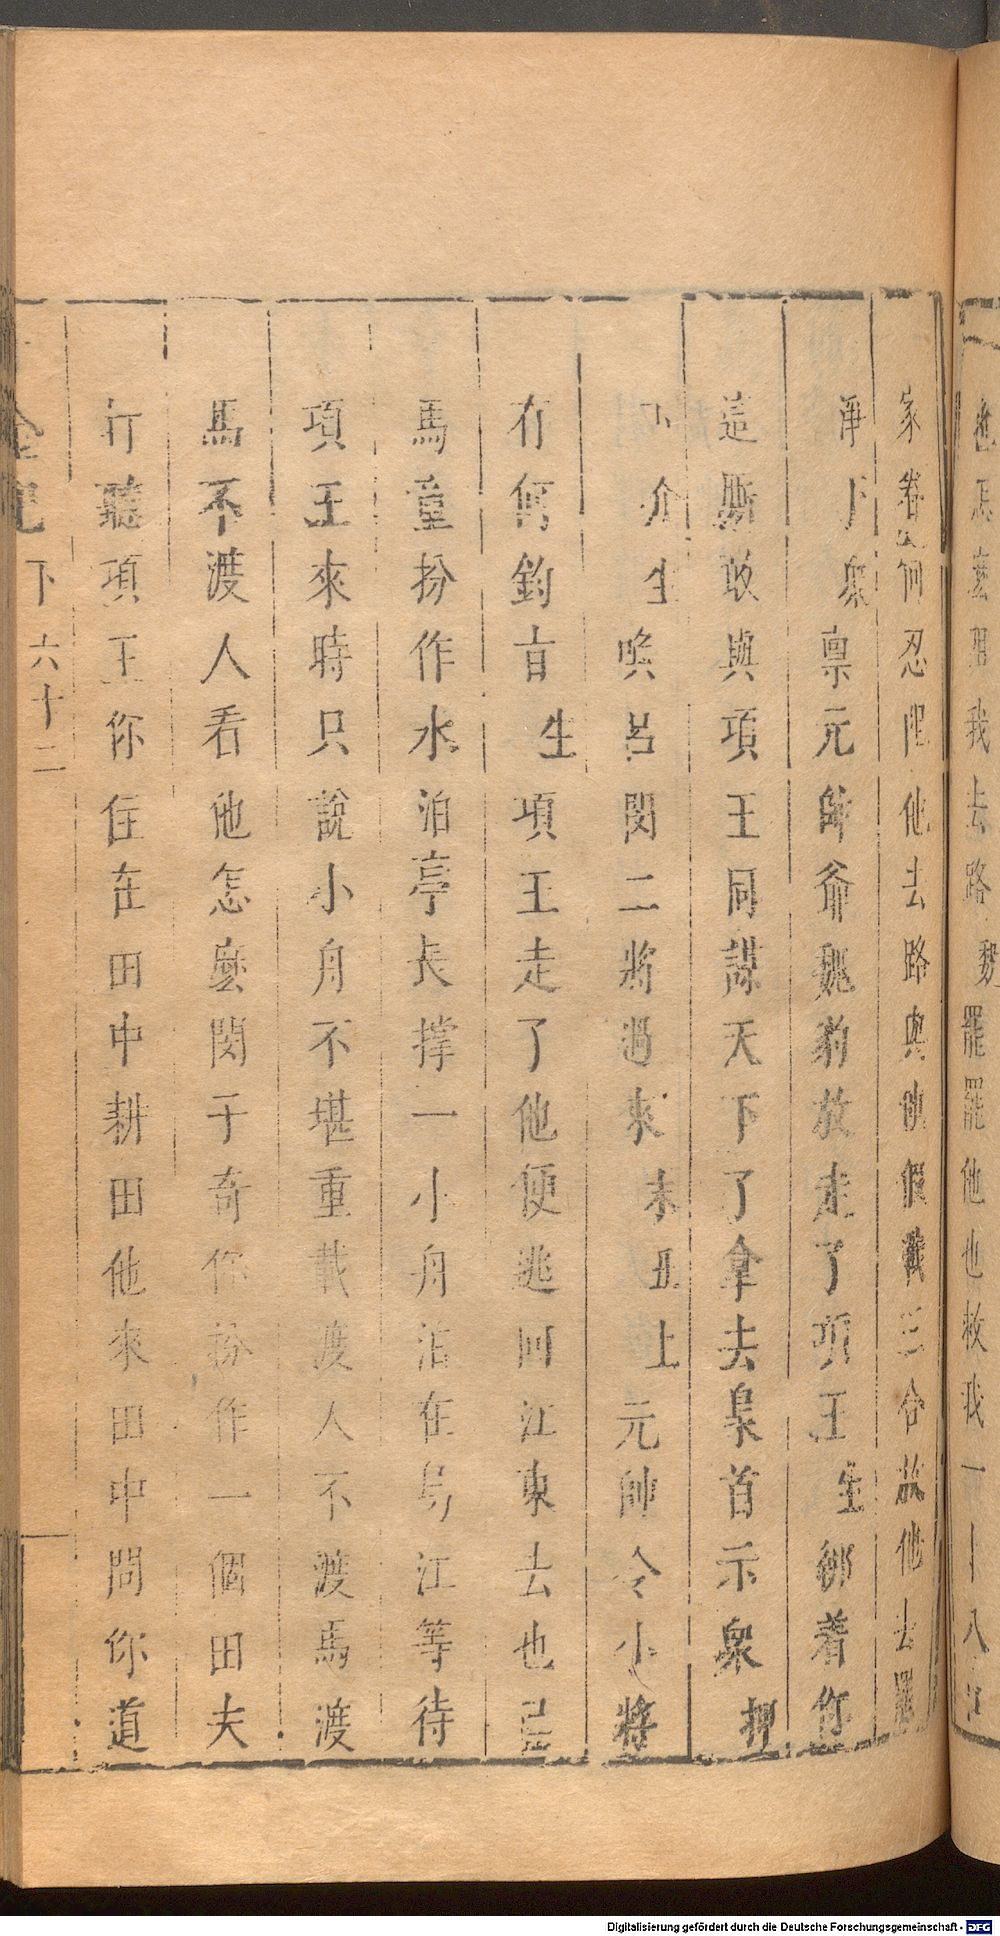 麽阻我去路魏罷罷他也救我一
家眷何忍阻他去路與他假戰三合放他去罷
淨下衆禀元帥爺魏豹放走了項王生綁着你
這厮敢與項王同謀天下了拿去梟首示衆押
下介生喚呂閔二將過來末丑上元帥令小將
有何鈞旨生項王走了他便逃回江東去也呂
馬童扮作水泊亭長撑一小舟泊在烏江等待
項王來時只說小舟不堪重載渡人不渡馬渡
馬不渡人看他怎麽閔于奇你扮作一個田夫
打聽項王你住在田中耕田他來田中問你道
全記 下 六十二
Digitalisierung gefördert durch die Deutsche Forschungsgemeinschaft - DFG